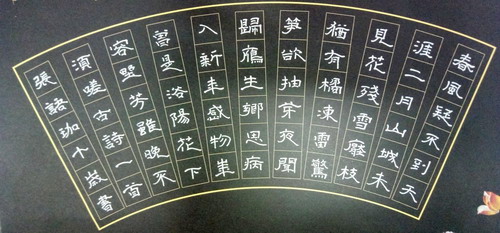 春風疑不到天
涯二月山城未
見花殘雪壓枝
猶有橘凍雷驚
笋欲抽芽夜聞
歸鴈生鄉思病
入新年感物華
曾是洛陽花下
客野芳雖晚不
須嗟古詩一首
張諾珈十歲書